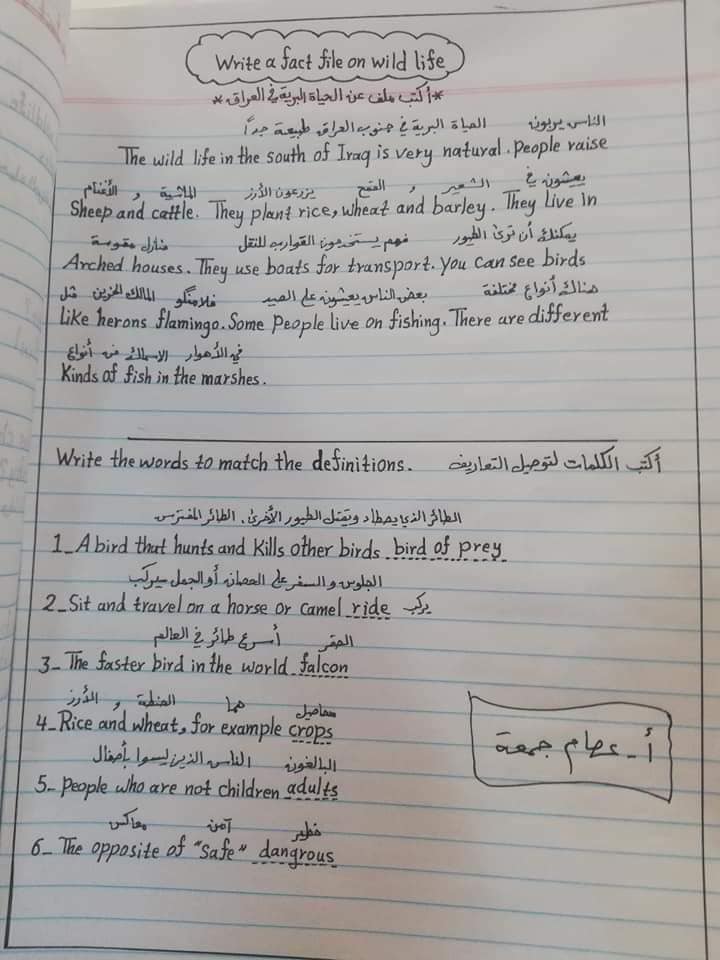 Write a fact file on wild life
*أكتب ملف عن الحياة البرية في العراق*
الناس يربون الحياة البرية في جنوب العراق طبيعة جداً
The wild life in the south of Iraq is very natural. People raise
يعيشون في الشعير و القمح يزرعون الأرز الماشية و الأغنام
Sheep and cattle. They plant rice, wheat and barley. They live in
يمكنك أن ترى الطيور فهم يستخدمون القوارب للنقل منازل مقوسة
Arched houses. They use boats for transport. You can see birds
هناك أنواع مختلفة بعض الناس يعيشون على الصيد فلامنگو المالك الحزين مثل
Like herons flamingo. Some People live on fishing. There are different
في الأهوار الاسماك من أنواع
Kinds of fish in the marshes.
Write the words to match the definitions. أكتب الكلمات لتوصيل التعاريف
الطائر الذي يصطاد ويقتل الطيور الأخرى. الطائر المفترس
1_A bird that hunts and kills other birds bird of prey
الجلوس والسفر على الحصان أو الجمل سيركب
2_Sit and travel on a horse or camel ride يركب
الصقر أسرع طائر في العالم
3_ The faster bird in the world falcon
محاصيل هما الحنطة و الأرز
4_Rice and wheat, for example crops
البالغون الناس الذين ليسوا بأطفال
5_ People who are not children adults
خطير آمن معاكس
6_ The opposite of "safe" dangrous
أ_ عصام جمعة